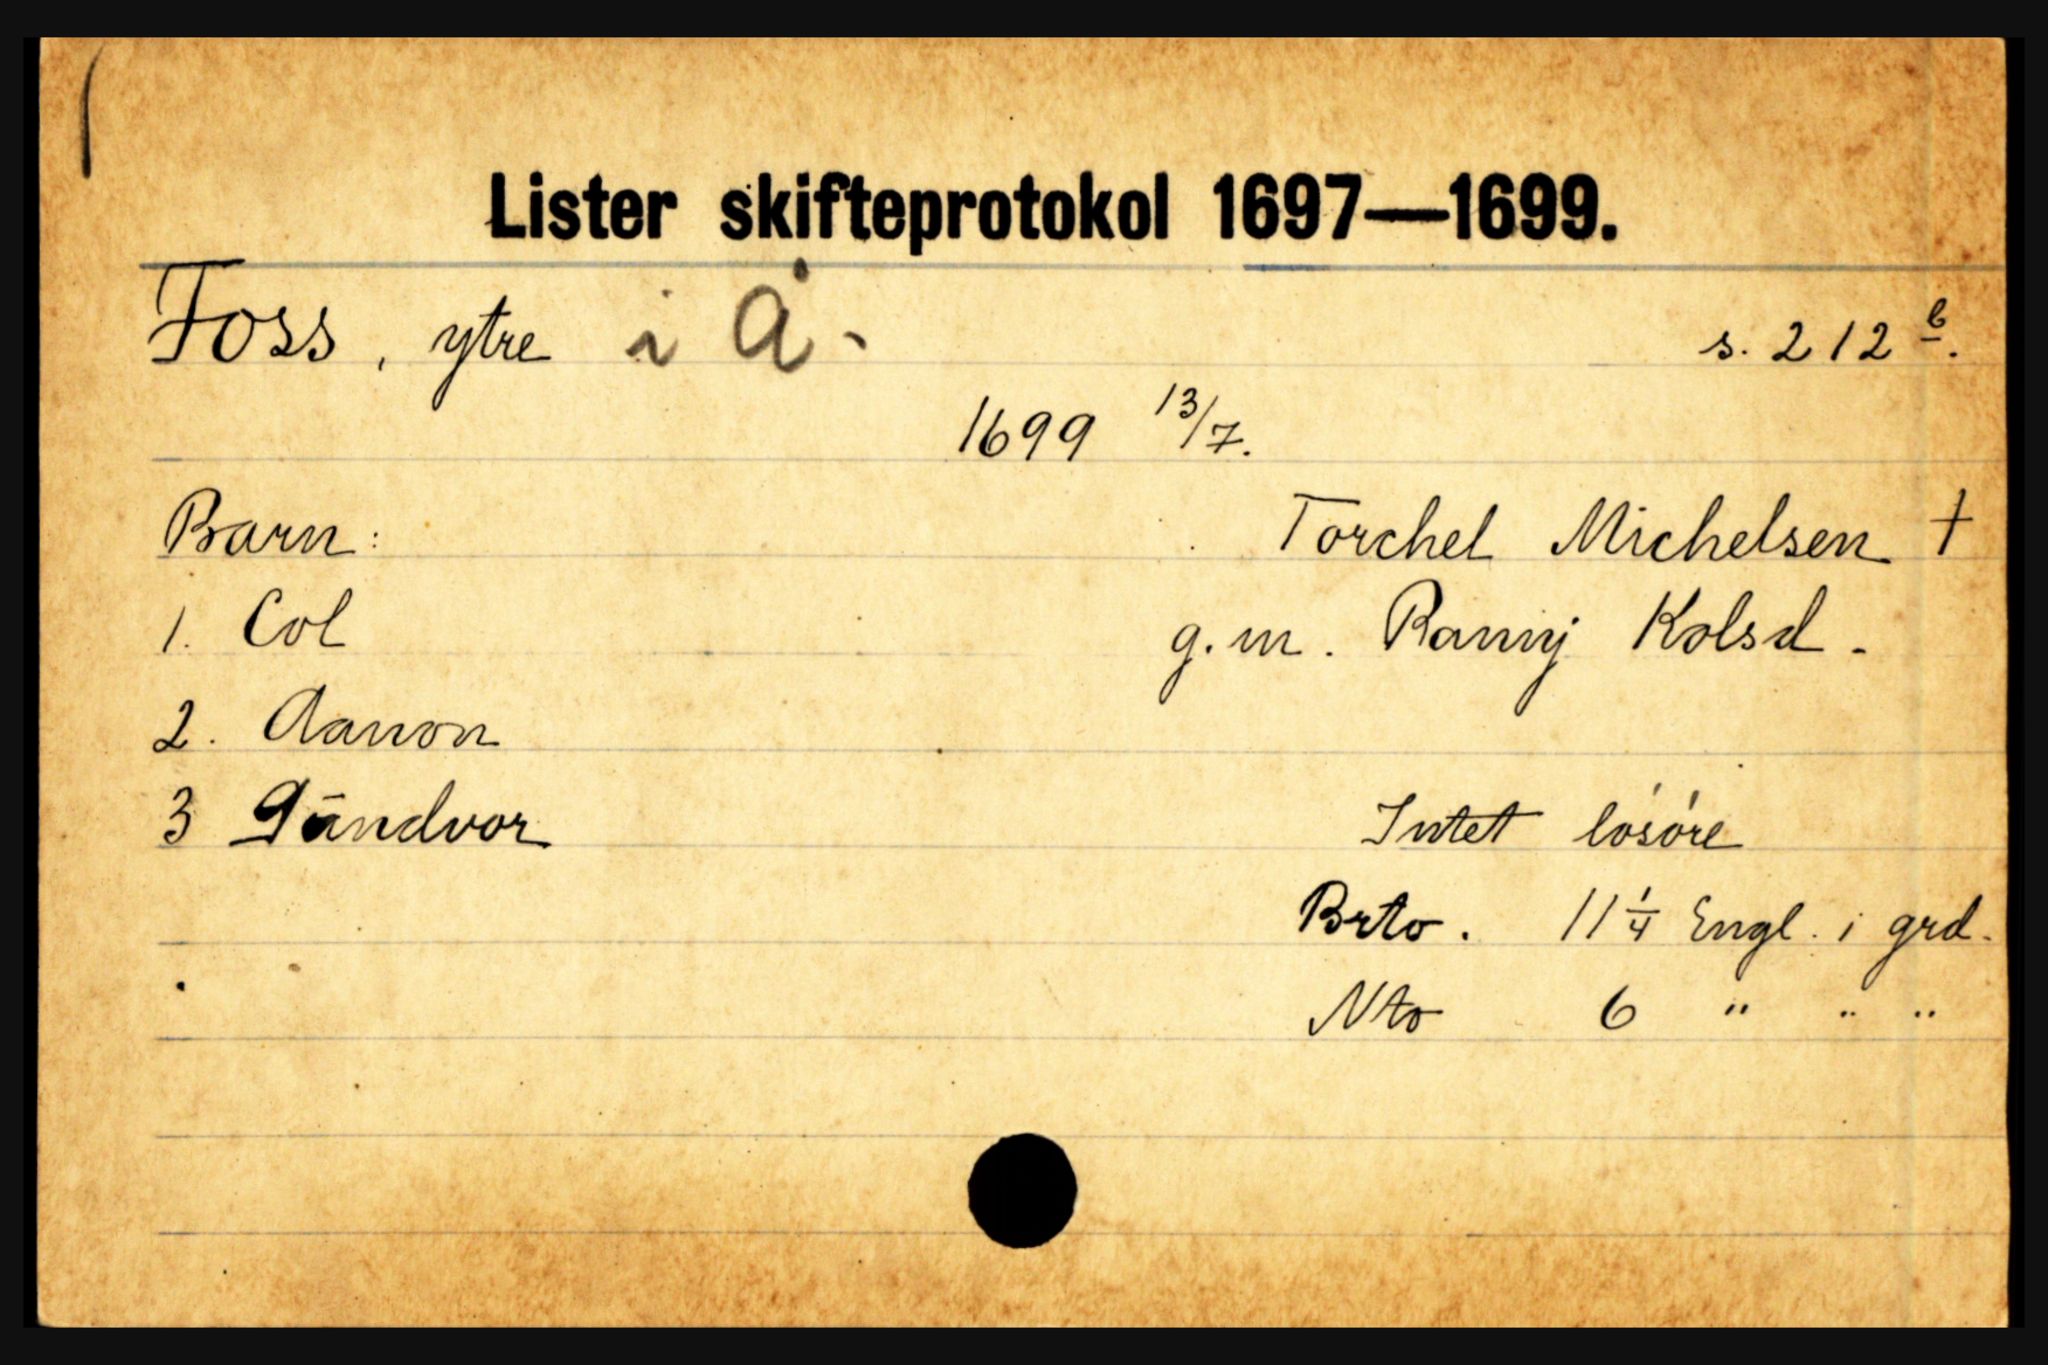 Lister skifteprotokol 1697—1699.
Foss, ytre i Å. s. 212 b.
1699 13/7.
Barn: Torchel Michelsen †
1. Col g.m. Rannj Kolsd.
2. Aanon
3 Gundvor Intet løsøre
Brto. 11 1/4 Engl. i grd.
Nto 6 " " "